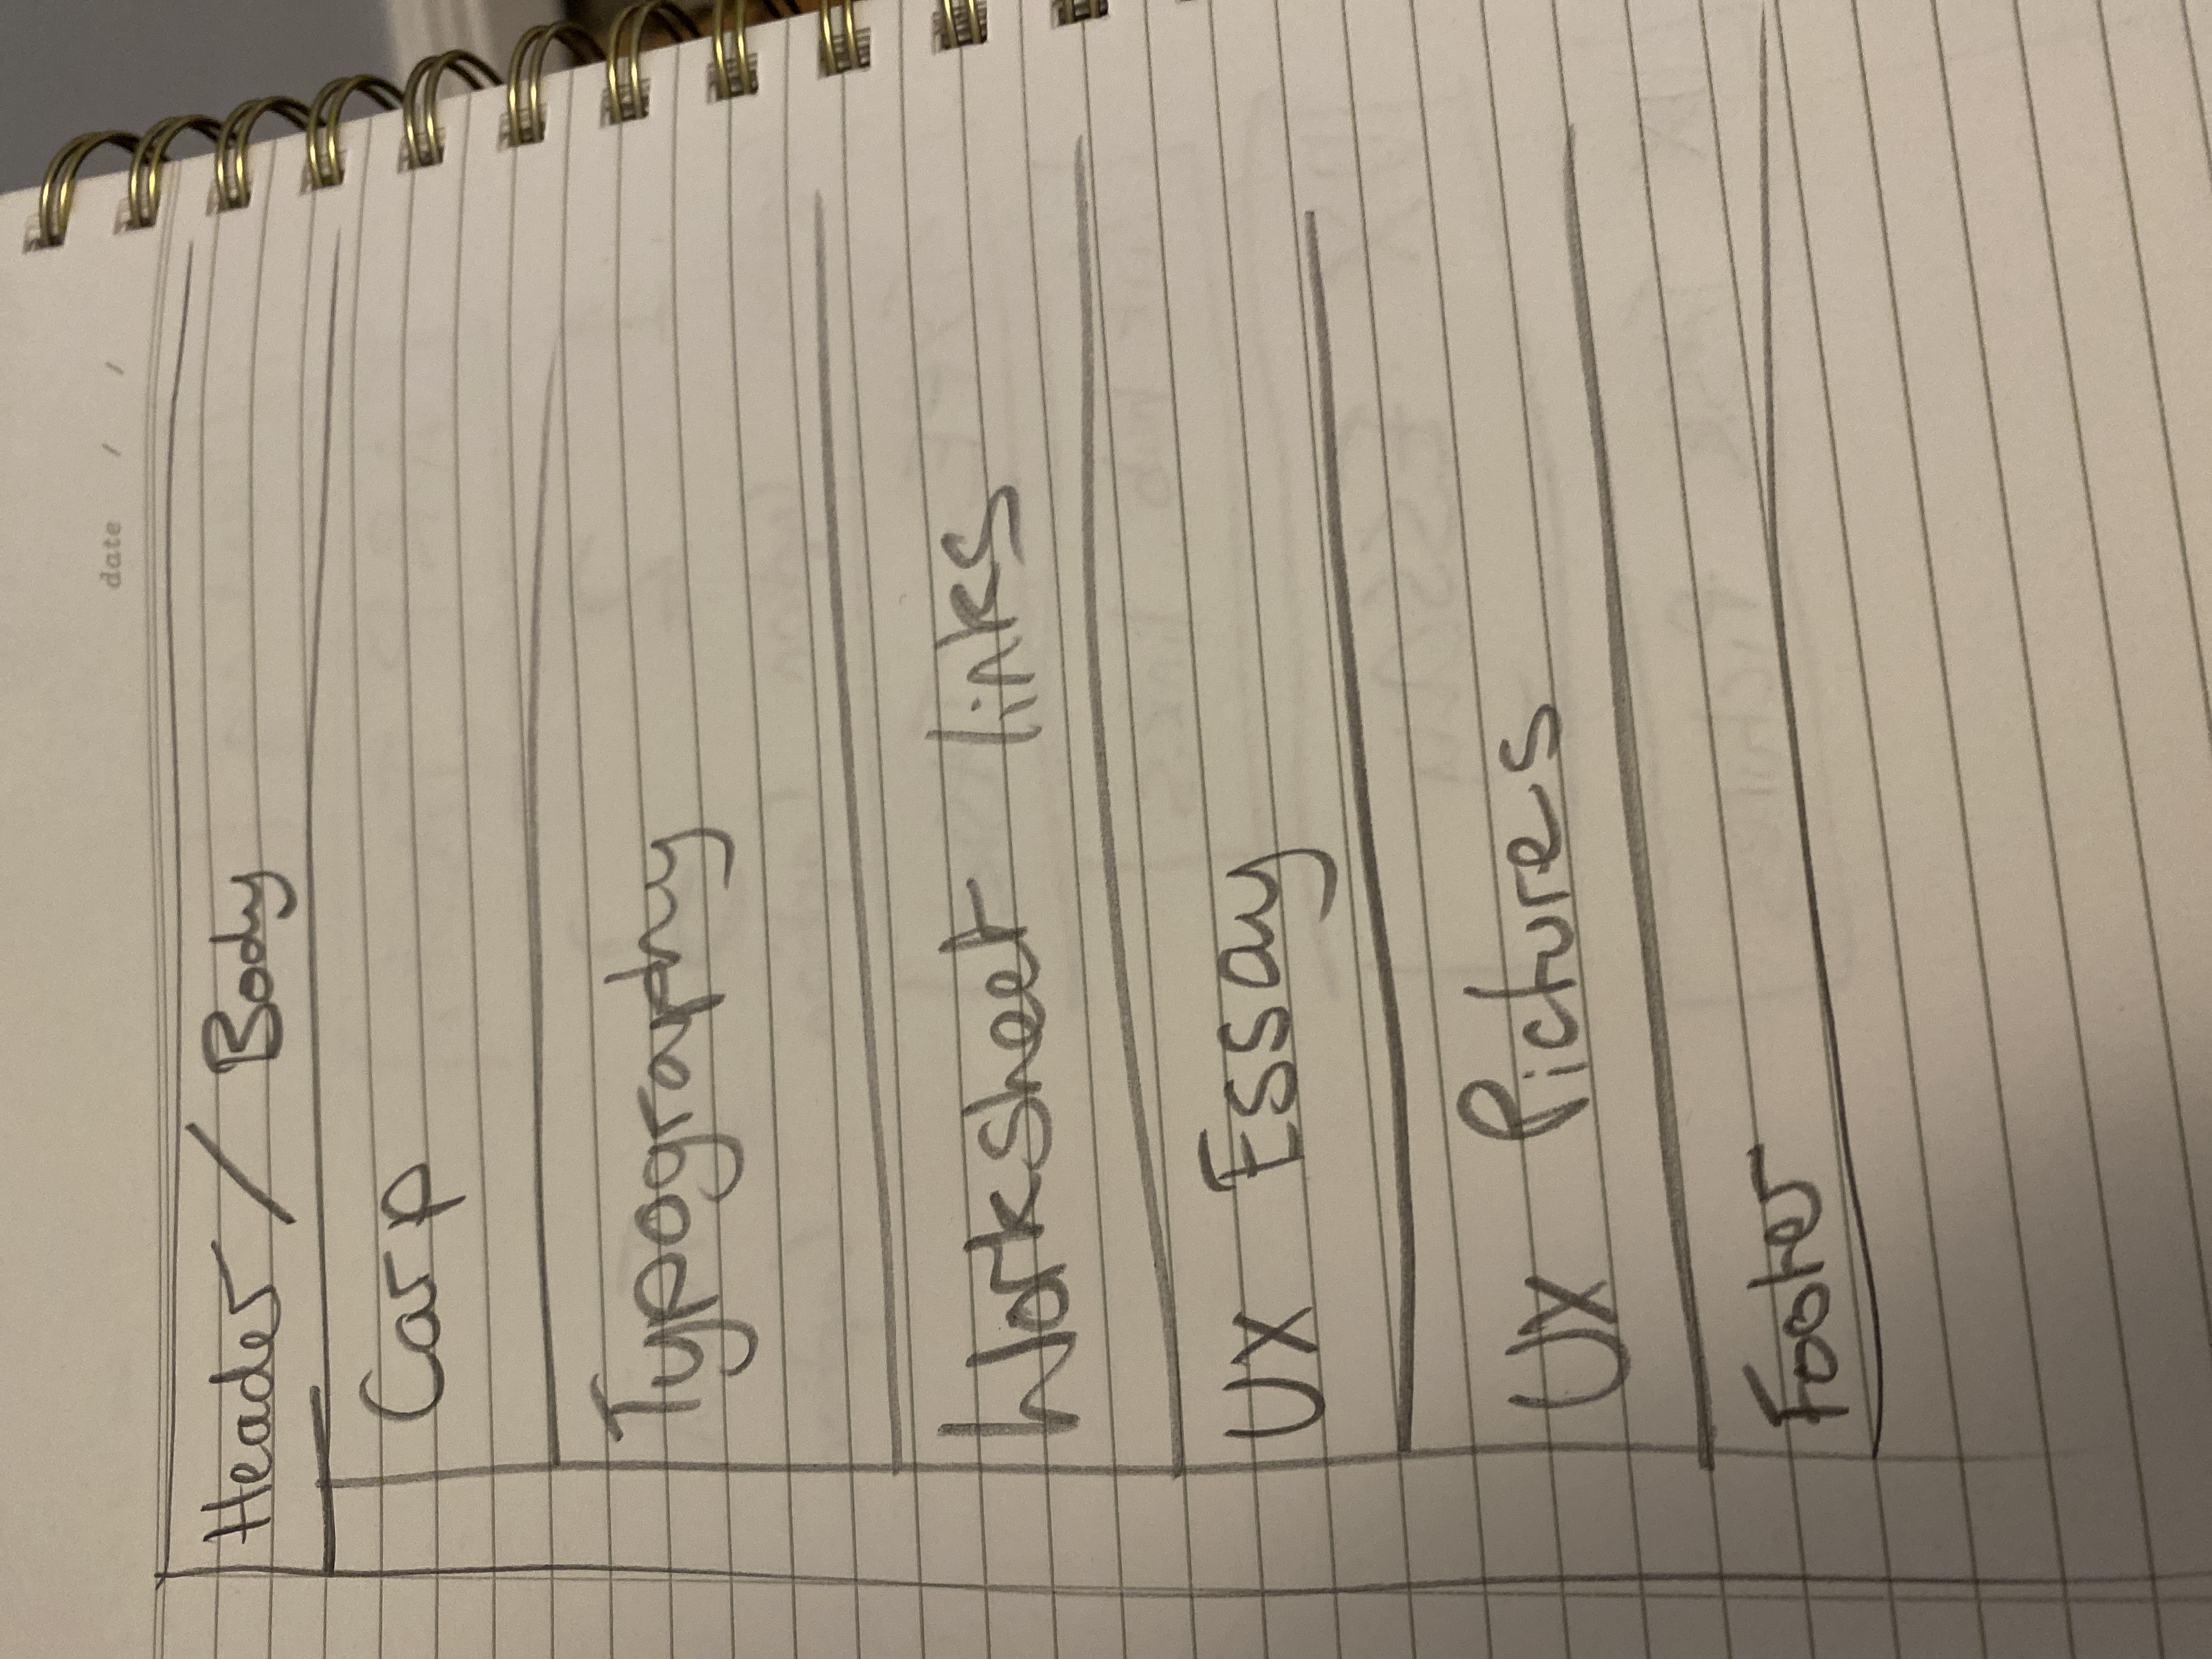 date / /
Header / Body
Carp
Typography
Worksheet links
UX Essay
UX Pictures
Footer